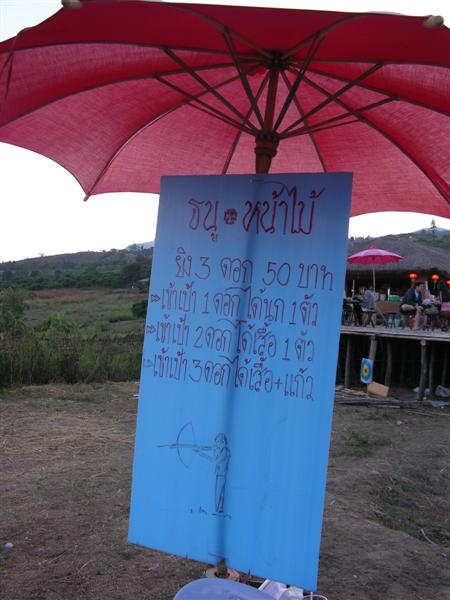 ธนู หน้าไม้
ยิง 3 ดอก 50 บาท
⇒เข้าเป้า 1 ดอก ได้นก 1 ตัว
⇒เข้าเป้า 2 ดอก ได้เสื้อ 1 ตัว
⇒เข้าเป้า 3 ดอก ได้เสื้อ+แก้ว